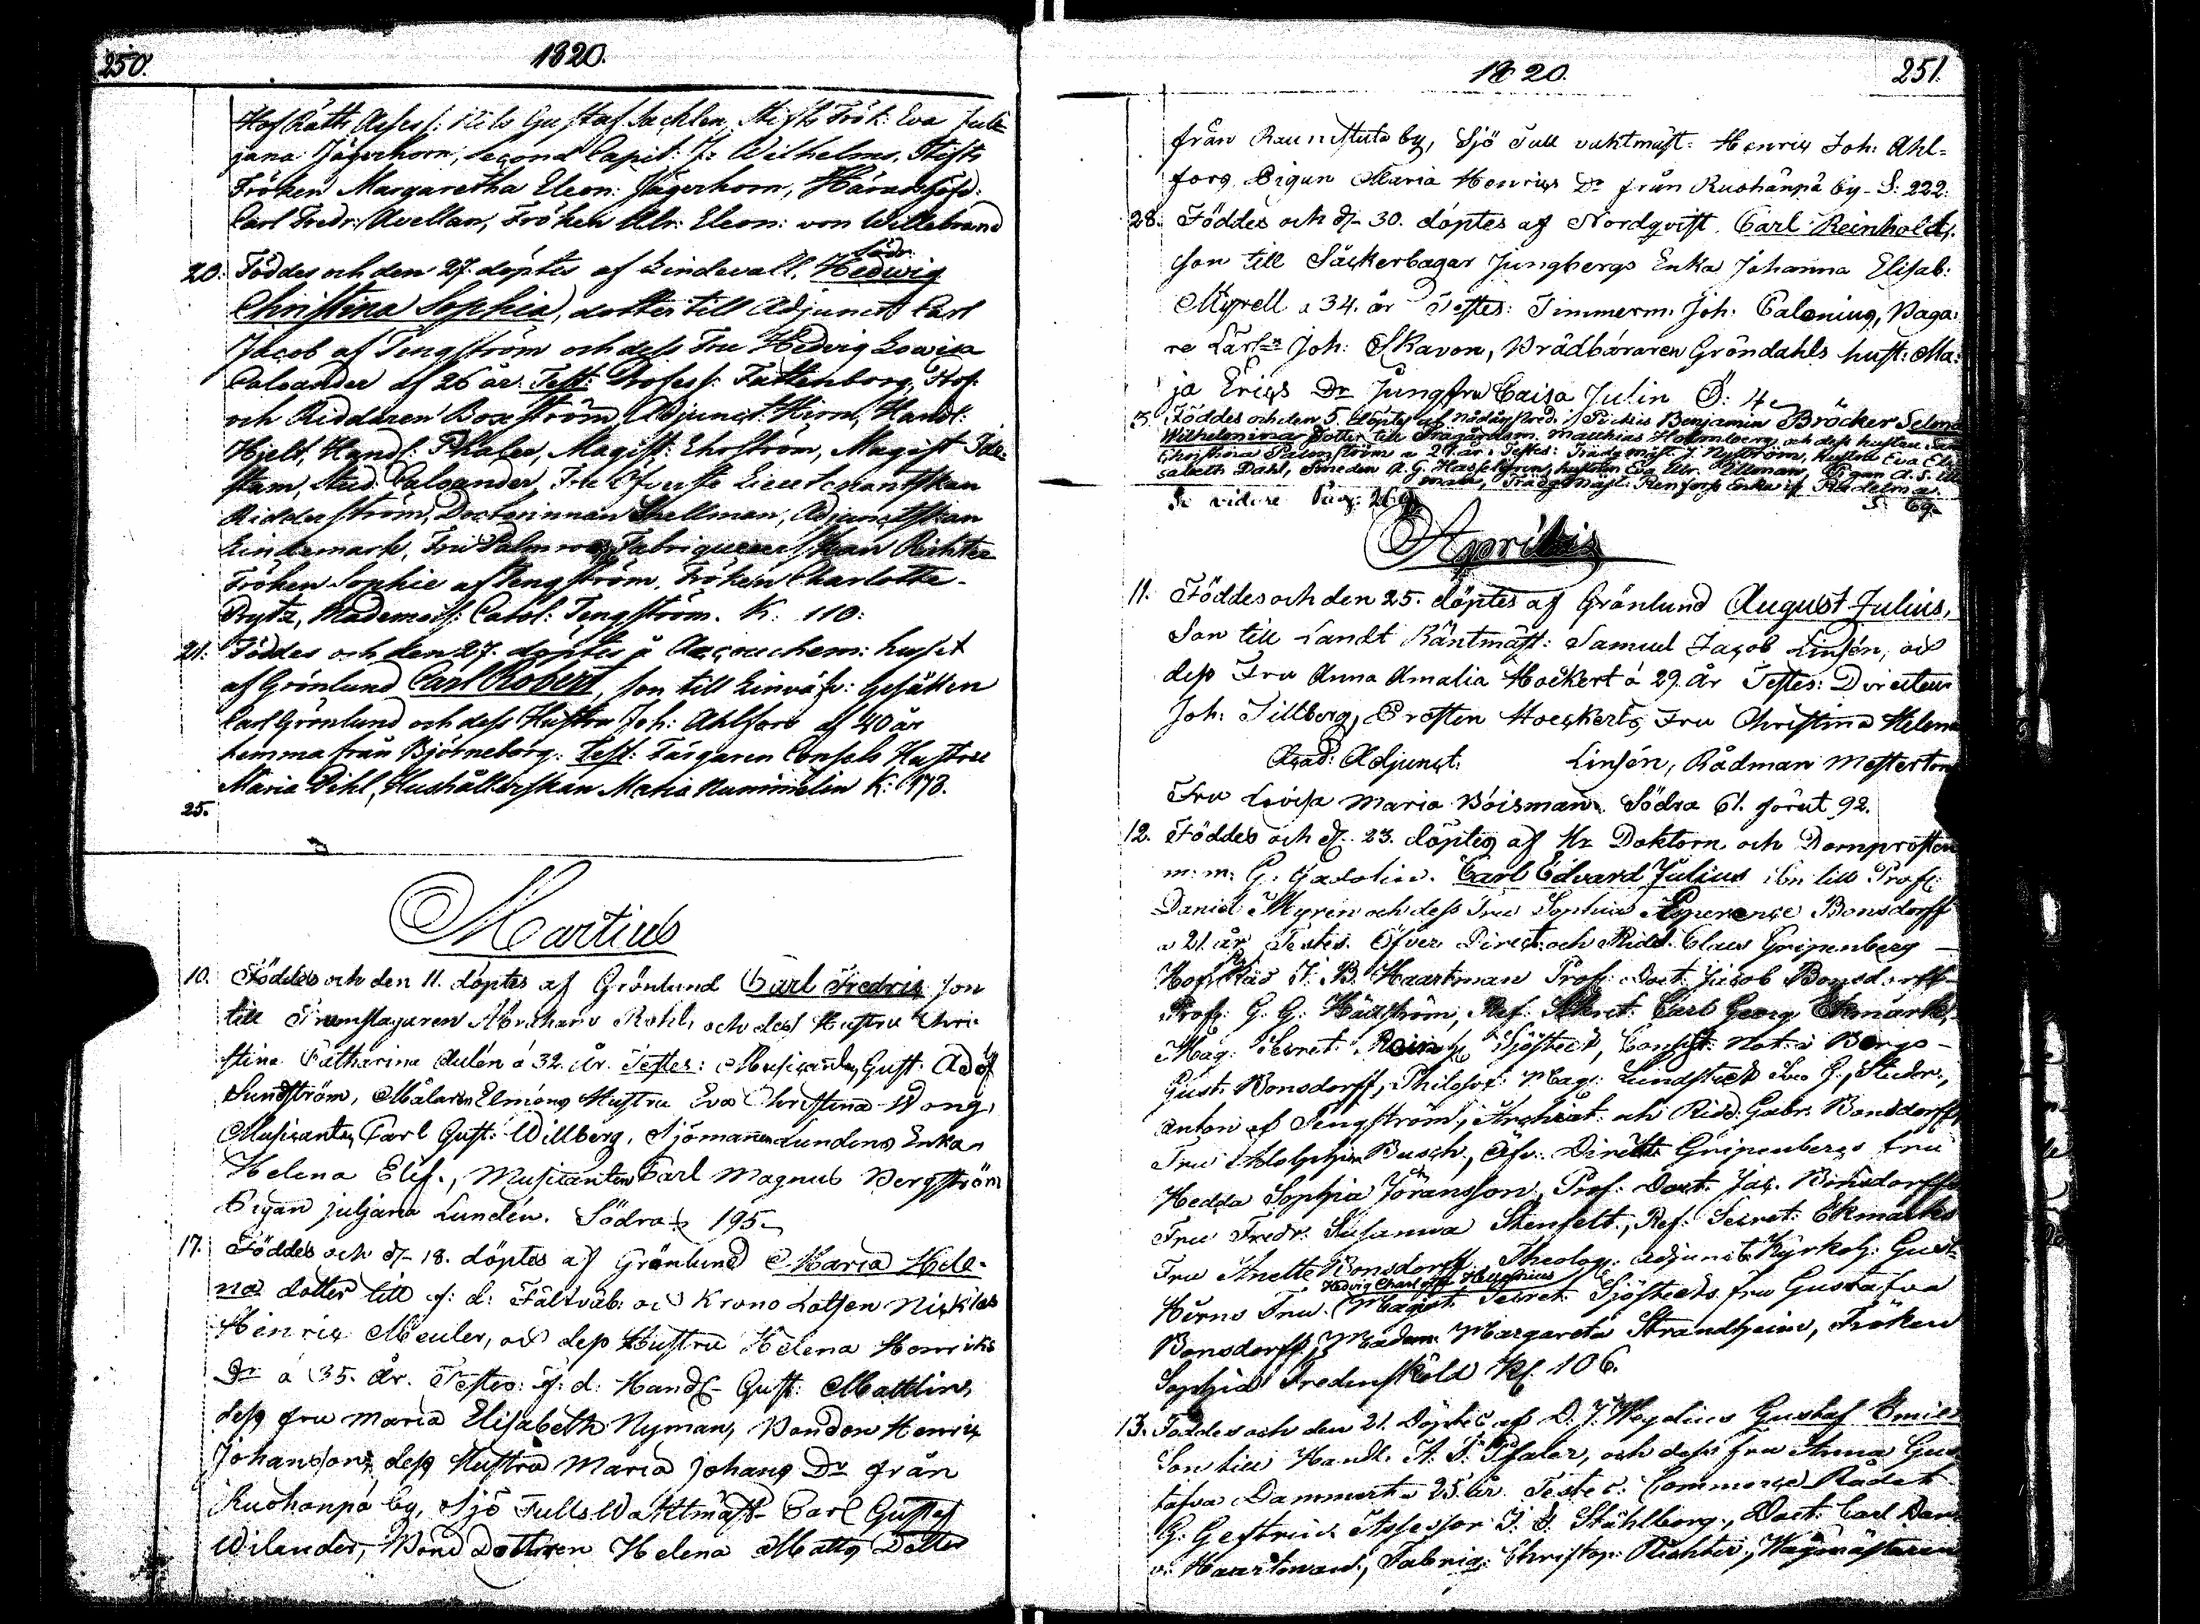 250.
1820.
Hof Räth. Assess: Nils Gustaf Sacklen, Stifts Frök: Eva Juli-
jana Jägerhorn, Second Capit: F: Wilhelms, Stifts
Fröken Margaretha Eleon: Jägerhorn, Häradshöfd:
Carl Fredr: Avellan, Fröken Ulr: Eleon: von Willebrand
20. Föddes och den 27. döptes af Lindevall, Hedwig
Christina Sophia, dotter till Adjunct Carl
Jacob af Tengström och dess Fru Hedvig Lovisa
Caloander af 26 år. Test: Profess: Fattenborg, Prof:
och Riddaren Boxström, Adjunct: Hirn, Handl:
Hjelt, Handl: Pfaler, Magist: Ehrström, Magist Ide-
stam, Stud. Caloander, Fru Öfverste Lieutenantskan
Ridderström, Doctorinnan Snellman, Adjunctskan
Lindemark, Fru Palmros, Fabriqueurskan Richter
Fröken Sophie af Tengström, Fröken Charlotta
Prytz, Mademois: Carol: Tengström. K. 110:
21. Föddes och den 27. döptes å Accouchem: huset
af Grönlund Carl Robert, son till Linväfv: Gesällen
Carl Grönlund och dess Hustru Joh: Ahlfors af 40 år
hemma från Björneborg. Test: Färgaren Consels Hustru
Maria Dihl, Hushållerskan Maria Nummelin K: 173.
25.
Martius
10. Föddes och den 11. döptes af Grönlund Carl Fredric son
till Trumslagaren Abraham Rohl, och dess Hustru Chri-
stina Catharina Aulén á 32. år. Testes: Musicanten Gust: Adolf
Sundström, Målaren Elmóns Hustru Eva Christina Wong,
Musicanten Carl Gust: Willberg, Sjömannen Lundens Enka
Helena Elis., Musicanten Carl Magnus Bergström
Pigan Juljana Lundén. Södra 195
17. Föddes och d. 18. döptes af Grönlund Maria Hele-
na dotter till f: d: Fältväb: och Krono Lotsen Nicklas
Henric Meuler, och dess Hustru Helena Henriks
Dr á 35. år. Testes: f: d: Handl. Gust: Mattlin,
dess fru Maria Elisabeth Nyman, Bonden Henric
Johansson, dess Hustru Maria Johans Dr från
Ruohanpä by, Sjö Tulls Waktmäst. Carl Gustaf
Wilander, Bond Dottren Helena Matts Dotter
1820.
251.
från Raunistula by, Sjö Tull vaktmäst: Henric Joh: Ahl-
fors, Pigan Maria Henrics Dr från Ruohanpä by. S: 222:
28. Föddes och d. 30. döptes af Nordqvist. Carl Reinhold,
son till Såckerbagar Jungbergs Enka Johanna Elisab:
Myrell a 34. år Testes: Timmerm. Joh: Calenius, Baga-
re Lärln Joh: Skavon, Brädbäraren Gröndahls hust: Ma-
ja Erics Dr Jungfru Caisa Julin Ö: 4
3. Föddes och den 5. döptes af Nådårspred. i Pickis Benjamin Bröcker Selma
Wilhelmina Dotter till Trägårdsm. Matthias Holmberg och dess hustru
Christina Palmström a 29. år. Testes: Trädgmäst. J. Nyström, hustru Eva Eli-
sabeth Dahl, Smeden A. G. Hasselgren, hustrun Eva Ulr. Pigan A. S.
Trädgmäst: Renfors Enka S: 69.
Se vidare Pag: 269
Aprilis
11. Föddes och den 25. döptes af Grönlund August Julius,
Son till Landt Räntmäst: Samuel Jacob Linsén, och
dess Fru Anna Amalia Hoeckert á 29. år Testes: Directeur
Joh: Tillberg, Prosten Hoeckerts, Fru Christina Helena
Acad: Adjunct: Linsén, Rådman Mesterton
Fru Lovisa Maria Boisman. Södra 61. förut 92.
12. Föddes och d. 23. döptes af Hr Doktorn och Domprosten
m: m: G. Gadolin. Carl Edvard Julius son till Prof:
Daniel Myrén och dess Fru Sophia Esperence Bonsdorff
a 21. år Testes. Öfver Direct: och Ridd: Claes Gripenberg
Hof Råd J: B: Haartman Prof: Doct: Jacob Bonsdorff
Prof: G. G. Hällström, Ref: Sekret: Carl Georg Ekmark,
Mag: Secret: Sjöstedt, Consist: Not: i Borgo
Gust: Bonsdorff, Philosof: Mag: Lundstedt Studer.,
Anton af Tengström, Archiat: och Ridd: Gabr: Bonsdorffs
Fru Adolphina Busch, Öfv: Direct: Gripenbergs fru
Hedda Sophia Jöransson, Prof: Doct: Jac. Bonsdorffs
Fru Fredr: Susanna Stenfelt, Ref: Secret: Ekmarks
Fru Anette Bonsdorff, Theolog: Adjunct Kyrkoh: Gust:
Hedvig Charlotta Hellenius
Hirns Fru. Magist: Secret: Sjöstedts fru Gustafva
Bonsdorff, Madam Margareta Strandheim, Fröken
Sophia Fredensköld Kl. 106.
13. Föddes och den 21. Döptes af D. J. Wegelius Gustaf Emil
Son till Handl. A. J. Pfaler, och dess fru Anna Gus-
tafva Dammert a 25. år. Testes. Commerce Rådet
G. Geftrin. Assessor J. J. Ståhlberg, Doct: Carl Dan:
v: Haartman, Fabriq: Christop: Richter, Wågmästaren